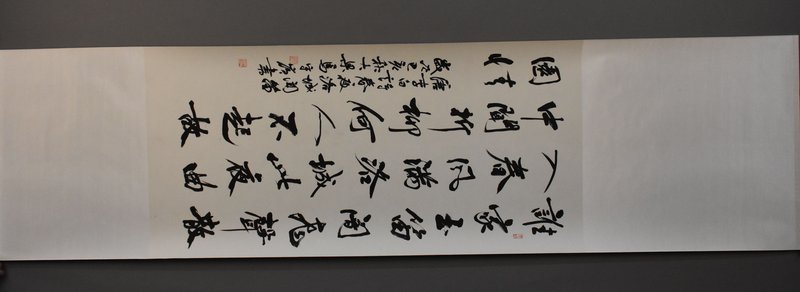 誰家玉笛闇飛聲散
入春風滿洛城此夜曲
中聞折柳何人不起故
園情
唐李白詩春夜洛城聞笛
歲次己亥於十堰馬書